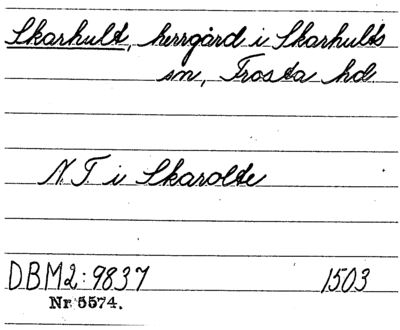 Skarhult, herrgård i Skarhults
sn, Frosta hd
N.T. i Skarolte
DBM2:9837 1503
Nr 5574.